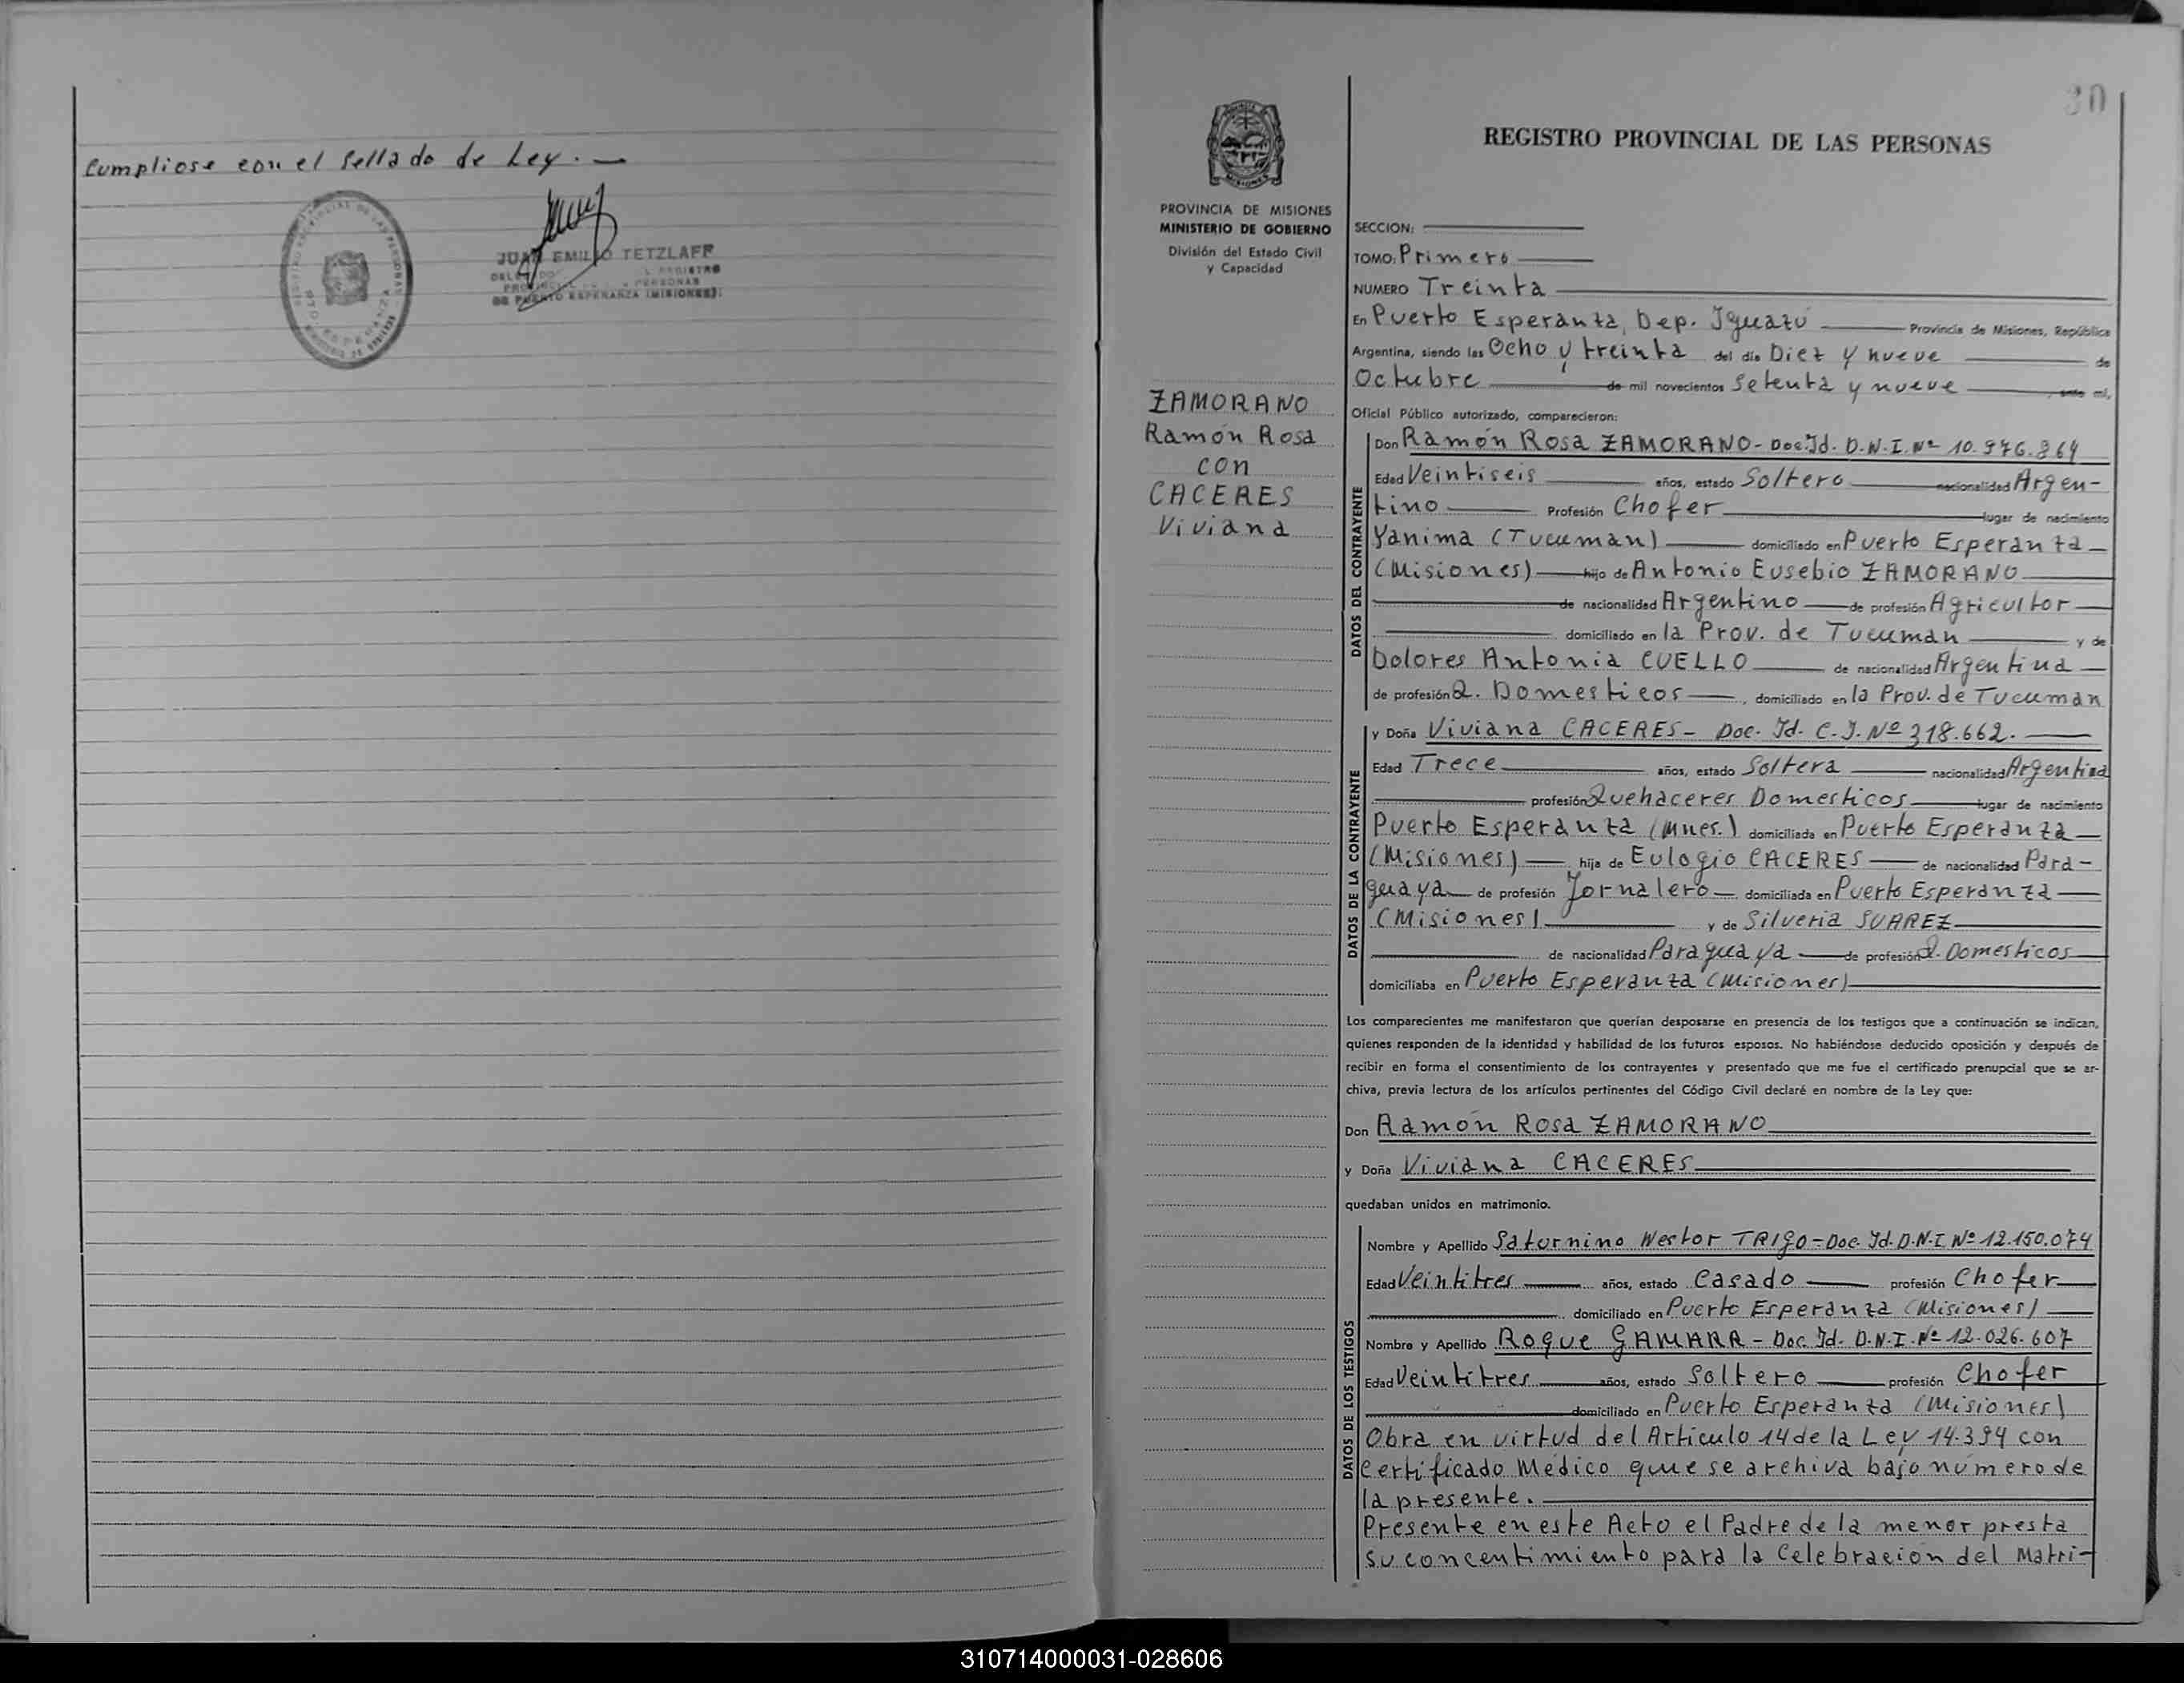 Cumpliose con el Sellado de Ley. —
JUAN EMILIO TETZLAFF
REGISTRO
PERSONAS
DE PUERTO ESPERANZA (MISIONES)
30
REGISTRO PROVINCIAL DE LAS PERSONAS
PROVINCIA DE MISIONES
MINISTERIO DE GOBIERNO
División del Estado Civil
y Capacidad
ZAMORANO
Ramón Rosa
con
CACERES
Viviana
SECCION:
TOMO: Primero
NUMERO Treinta
En Puerto Esperanza, Dep. Iguazú Provincia de Misiones, República
Argentina, siendo las Ocho y treinta del día Diez y nueve de
Octubre de mil novecientos Setenta y nueve, ante mi,
Oficial Público autorizado, comparecieron:
DATOS DEL CONTRAYENTE
Don Ramón Rosa ZAMORANO - Doc. Id. D.N.I. Nº 10.976.864
Edad Veintiseis años, estado Soltero nacionalidad Argen-
tino Profesión Chofer lugar de nacimiento
Yanima (Tucuman) domiciliado en Puerto Esperanza
(Misiones) hijo de Antonio Eusebio ZAMORANO
de nacionalidad Argentino de profesión Agricultor
domiciliado en la Prov. de Tucuman y de
Dolores Antonia CUELLO de nacionalidad Argentina
de profesión Q. Domesticos, domiciliado en la Prov. de Tucuman
DATOS DE LA CONTRAYENTE
y Doña Viviana CACERES - Doc. Id. C.I. Nº 318.662.
Edad Trece años, estado Soltera nacionalidad Argentina
profesión Quehaceres Domesticos lugar de nacimiento
Puerto Esperanza (Mnes.) domiciliada en Puerto Esperanza
(Misiones) hija de Eulogio CACERES de nacionalidad Para-
guaya de profesión Jornalero domiciliada en Puerto Esperanza
(Misiones) y de Silveria SUAREZ
de nacionalidad Paraguaya de profesión Q. Domesticos
domiciliaba en Puerto Esperanza (Misiones)
Los comparecientes me manifestaron que querían desposarse en presencia de los testigos que a continuación se indican,
quienes responden de la identidad y habilidad de los futuros esposos. No habiéndose deducido oposición y después de
recibir en forma el consentimiento de los contrayentes y presentado que me fue el certificado prenupcial que se ar-
chiva, previa lectura de los artículos pertinentes del Código Civil declaré en nombre de la Ley que:
Don Ramón Rosa ZAMORANO
y Doña Viviana CACERES
quedaban unidos en matrimonio.
DATOS DE LOS TESTIGOS
Nombre y Apellido Saturnino Nestor TRIGO - Doc. Id. D.N.I. Nº 12.150.074
Edad Veintitres años, estado Casado profesión Chofer
domiciliado en Puerto Esperanza (Misiones)
Nombre y Apellido Roque GAMARR - Doc. Id. D.N.I. Nº 12.026.607
Edad Veintitres años, estado Soltero profesión Chofer
domiciliado en Puerto Esperanza (Misiones)
Obra en virtud del Articulo 14 de la Ley 14.394 con
Certificado Medico que se archiva bajo número de
la presente.
Presente en este Acto el Padre de la menor presta
su concentimiento para la Celebracion del Matri-
310714000031-028606